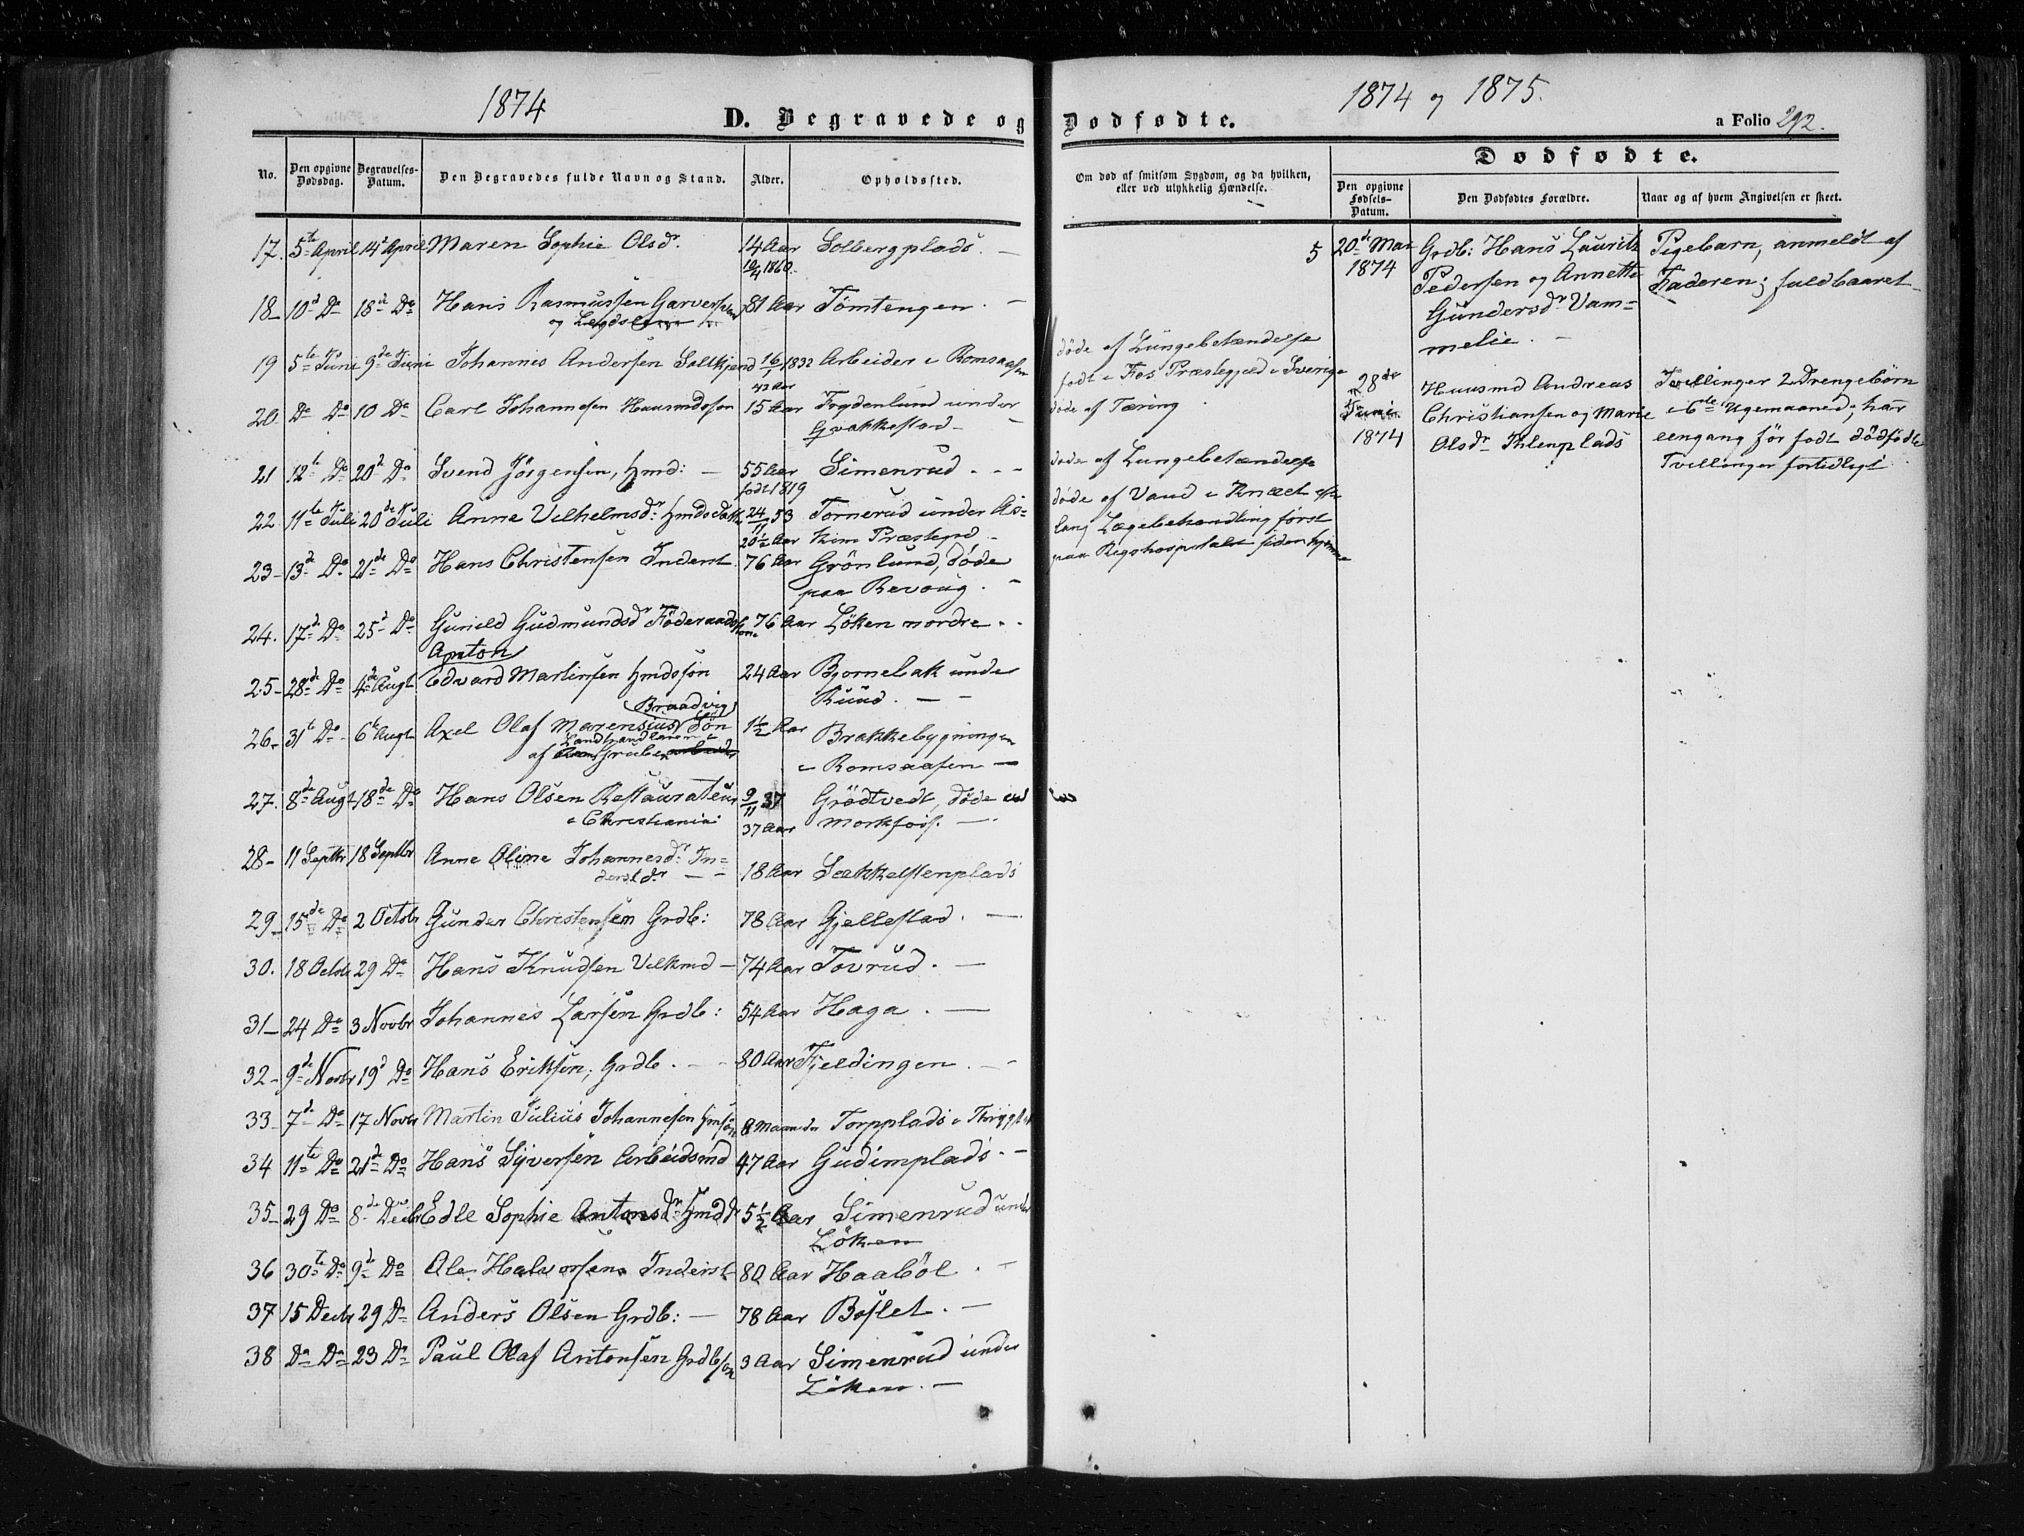 1874
D. Begravede og Dødfødte.
1874 og 1875.
a Folio 292.
No.
Den opgivne Dødsdag.
Begravelses-Datum.
Den Begravedes fulde Navn og Stand.
Alder.
Opholdssted.
Om død af smitsom Sygdom, og da hvilken,
eller ved ulykkelig Hændelse.
Dødfødte.
Den opgivne Fødsels-Datum.
Den Dødfødtes Forældre.
Naar og af hvem Angivelsen er skeet.
17. 5te April 14d April Maren Sophie Olsdr. 14 Aar Solbergplads. —
10/4 1860.
18 – 10d Do 18d Do Hans Rasmussen 81 Aar Tømtengen. —
og
19 5te Juni 9de Juni Johannis Andersen 16/1 1832 Arbeider i Romsaasen
42 Aar
døde af Lungebetændelse
født i Fos Præstegjeld i Sverige
20. Do Do 10 Do Carl Johannesen Huusmdssøn 15 Aar Fogdenlund under
Gvakkestad –
døde af Tæring
21 12te Do 20d Do Svend Jørgensen, Hmd: — 55 Aar Simenrud . - -
født 1819
døde af Lungebetændelse
22 11te Juli 20de Juli Anne Vilhelmsdr. Hmdsdatter 24/11 53 Tornerud under As=
20½ Aar kim Præstegd –
døde af Vand i Knæet efter
lang Lægebehandling først
paa Rigshospitalet siden hjemme
23 – 13d Do 21de Do Hans Christensen Inderst 76 Aar Grönlund, døde
paa Revoug. –
24. 17d Do 25d Do Gunild Gudmundsdr Føderaadskone 76 Aar Løken nordre . .
Anton
25 – 28de Do 4de Augt Edvard Martinsen Hmdssøn 24 Aar Bjornebak under
Ruud. — –
Braadvig
26 – 31te Do 6te Augt Axel Olaf Marensius Søn 1½ Aar Brakkebygningen
Landhandleren
af
i Romsaasen —
27. 8de Augt 18de Do Hans Olsen Restaurateur 9/11 37 Grödtvedt, døde ved
i Christiania 37 Aar Morkfos. —
28 – 11 Septbr 18 Septbr Anne Oline Johannesdr. In=
derstdr — – 18 Aar Sækkelstenplads
29 – 15de Do 2 Octobr Gunder Christensen Grdb: 78 Aar Gjellestad. —
30. 18 Octobr 29 Do Hans Knudsen Vilkmd — 74 Aar Tovrud. —
31 – 24 Do 3 Novbr Johannes Larsen Grdb: 54 Aar Haga. —
32 – 9de Novbr 19d Do Hans Eriksen, Grdb. - - 80 Aar Fjeldingen. - –
33 – 7de Do 17 Novbr Martin Julius Johannesen Hmsøn 8 Maaneder Torpplads i Thrygstad
34 11te Do 21de Do Hans Syversen Arbeidsmd 47 Aar Gudimplads. –
35 – 29 Do 8de Decbr Edle Sophie Antonsdr. Hmddr 5½ Aar Simenrud under
Løken
36 30te Do 9de Do Ole Halvorsen Inderst 80 Aar Haaböl . –
37 15 Decbr 29 Do Anders Olsen Grdb: — 78 Aar Boslet. —
38 Do Do 23 Do Paul Olaf Antonsen Grdbssøn 3 Aar Simenrud under
Løken. —
5 20de Mai
1874
Grdb: Hans Lauritz
Pedersen og Annette
Gundersdr Vam=
melie. –
Pigebarn, anmeldt af
Faderen; fuldbaaret –
28de
Juni
1874
Huusmd Andreas
Christiansen og Marie
Olsdr Ihlenplads
Tvillinger 2 Drengebörn
i 6te Ugemaaned; har
eengang før født dødfødte
Tvillinger fortidligt